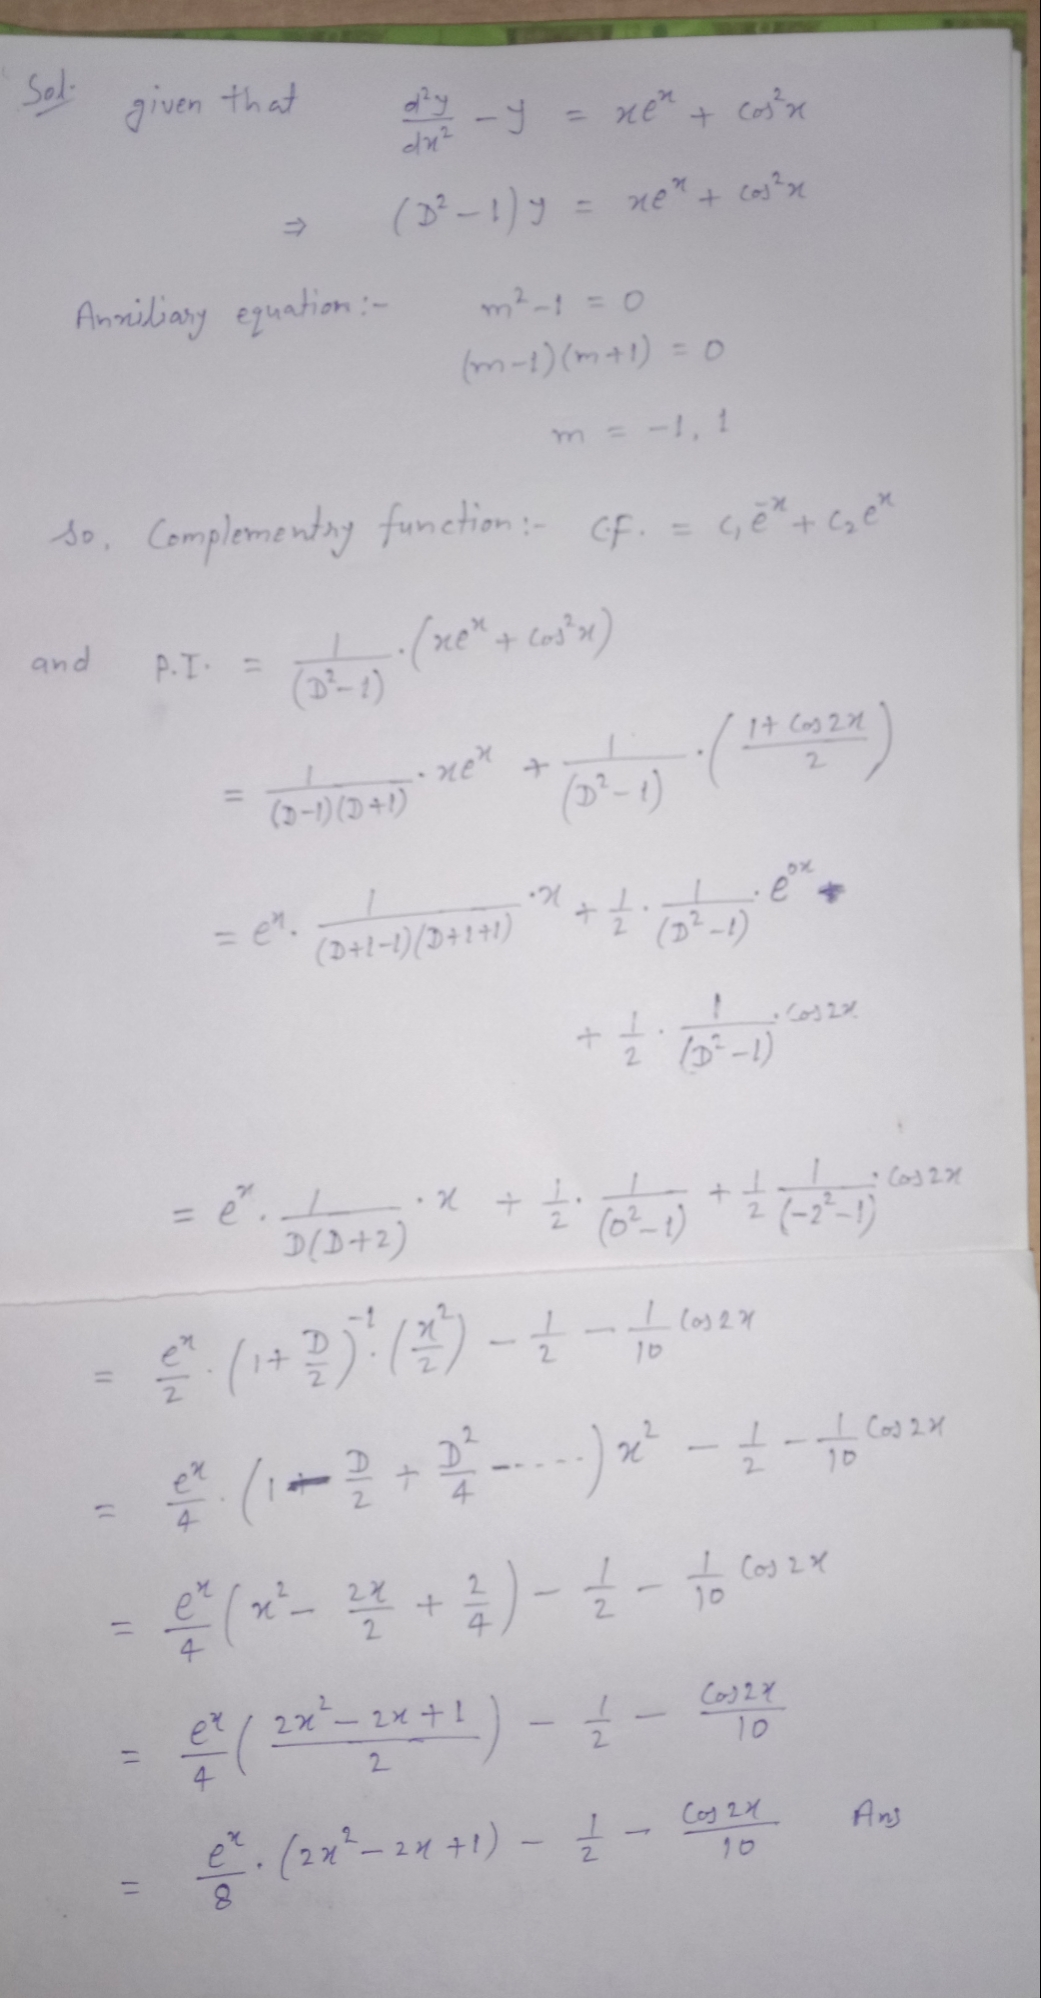 Sol. given that d²y/dx² - y = xeˣ + cos²x
⇒ (D² - 1) y = xeˣ + cos²x
Auxiliary equation :- m² - 1 = 0
(m-1)(m+1) = 0
m = -1, 1
so, Complementry function :- C.F. = c₁e⁻ˣ + c₂eˣ
and P.I. = 1/(D²-1) · (xeˣ + cos²x)
= 1/((D-1)(D+1)) · xeˣ + 1/(D²-1) · ((1+cos2x)/2)
= eˣ · 1/((D+1-1)(D+1+1)) · x + 1/2 · 1/(D²-1) · e⁰ˣ
+ 1/2 · 1/(D²-1) · cos2x
= eˣ · 1/(D(D+2)) · x + 1/2 · 1/(0²-1) + 1/2 1/(-2²-1) · cos2x
= eˣ/2 · (1 + D/2)⁻¹ · (x²/2) - 1/2 - 1/10 cos2x
= eˣ/4 · (1 - D/2 + D²/4 - .....) x² - 1/2 - 1/10 cos2x
= eˣ/4 (x² - 2x/2 + 2/4) - 1/2 - 1/10 cos2x
= eˣ/4 ((2x² - 2x + 1)/2) - 1/2 - cos2x/10
= eˣ/8 · (2x² - 2x + 1) - 1/2 - cos2x/10 Ans